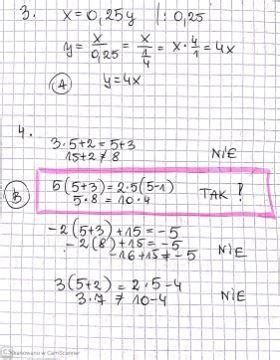 3. x = 0,25y |: 0,25
y = x/0,25 = x/(1/4) = x · 4/1 = 4x
A y = 4x
4.
3 · 5 + 2 = 5 + 3
15 + 2 ≠ 8 NIE
B 5(5+3) = 2 · 5(5-1) TAK!
5 · 8 = 10 · 4
-2(5+3) + 15 = -5
-2(8) + 15 = -5
-16 + 15 ≠ -5 NIE
3(5+2) = 2 · 5 - 4
3 · 7 ≠ 10 - 4 NIE
CS Skanowano w CamScanner